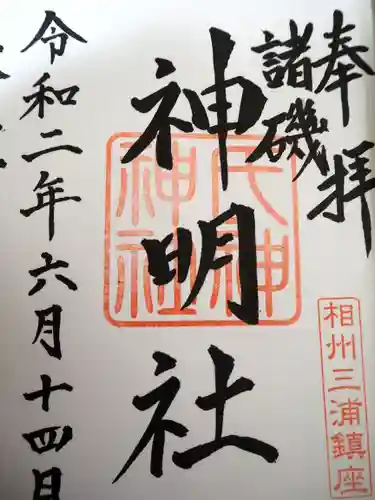 奉拝
諸磯
神明社
相州三浦鎮座
令和二年六月十四日